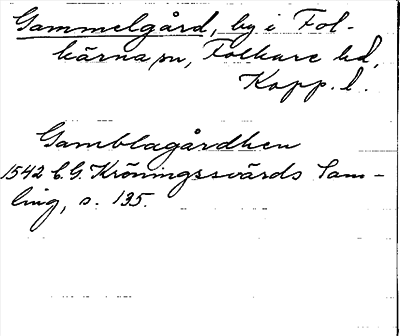 Gammelgård, by i Fol-
kärna sn, Folkare hd,
Kopp. l.
Gamblagårdhen
1542 C.G. Kröningssvärds Sam-
ling, s. 135.